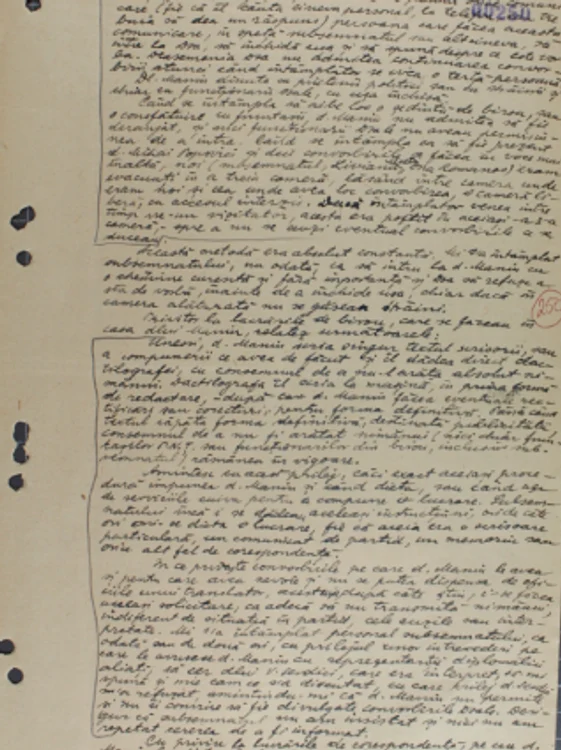 care (fie că îl căuta cineva personal, la tele
00250
buia să dea un răspuns) persoana care făcea această
comunicare, în speță subsemnatul sau altcineva, să
intre la Dsa, să închidă ușa și să spună despre ce este vor
ba. Deasemenea Dsa nu admitea continuarea convor-
birii atunci când întâmplător se ivea o terță persoană
Dl. Maniu discuta cu prietenii politici sau cu străinii și
chiar cu funcționarii Dsale, cu ușa închisă.
Când se întâmpla să aibe loc o ședință de birou, sau
o consfătuire cu fruntașii, d. Maniu nu admitea să fie
deranjat, și nici funcționarii Dsale nu aveau permisiu-
nea de a intra. Când se întâmpla ca să fie prezent
d. Mihai Popovici și deci convorbirile se făceau în voce mai
înaltă, noi (subsemnatul, Romanos) eram
evacuați în a treia cameră, lăsând între camera unde
eram noi și cea unde avea loc convorbirea, o cameră li-
beră, cu accesul interzis. Dacă întâmplător venea între
timp vre-un vizitator, acesta era poftit în aceiași a 3-a
cameră, spre a nu se auzi eventual convorbirile ce se
duceau.
Această metodă era absolut constantă. Mi s'a întâmplat
subsemnatului, nu odată, ca să intru la d. Maniu cu
o chestiune curentă și fără importanță și Dsa să refuze a
sta de vorbă, înainte de a închide ușa, chiar dacă în
camera alăturată nu se găseau străini.
250
Privitor la lucrările de birou, care se făceau în
casa dlui Maniu, relatez următoarele:
Uneori, d. Maniu scria singur textul scrisorii, sau
a compunerii ce avea de făcut și îl dădea direct dac-
tilografei, cu consemnul de a nu-l arăta absolut ni-
mănui. Dactilografa îl scria la mașină, în prima formă
de redactare, după care d. Maniu făcea eventuale rec-
tificări sau corecturi, pentru forma definitivă. Până când
textul căpăta forma definitivă, destinată publicității
consemnul de a nu fi arătat nimănui (nici chiar frun-
tașilor P.N.Ț. sau funcționarilor din birou, inclusiv sub-
semnatul) rămânea în vigoare.
Amintesc cu acest prilej, că exact aceiași proce-
dură impunea d. Maniu și când dicta, sau când uza
de serviciile cuiva pentru a compune o lucrare. Subsem-
natului încă i se dădeau aceleași instrucțiuni, ori de câte
ori se dicta o lucrare, fie că aceia era o scrisoare
particulară, un comunicat de partid, un memoriu sau
orice alt fel de corespondență.
În ce privește convorbirile pe care d. Maniu le avea
și pentru care avea nevoie și nu se putea dispensa de ofi-
ciile unui translator, acestuia după câte știu, i se făcea
aceiași solicitare, ca adecă să nu transmită nimănui,
indiferent de situația în partid, cele auzite sau inter-
pretate. Mi s'a întâmplat personal subsemnatului, ca
odată sau de două ori, cu prilejul unor întrevederi pe
care le avusese d. Maniu cu reprezentanții diplomatici
aliați, să cer dlui V. Serdici, care era interpret, să-mi
spună și mie cam ce s'a discutat, cu care prilej d. Serdici
m'a refuzat, amintindu-mi că d. Maniu nu permite
și nu-i convine să fie divulgate convorbirile Dsale. Desi-
gur că subsemnatul nu am insistat și nici nu am
repetat cererea de a fi informat.
Cu privire la lucrările de corespondență, pe cari d.